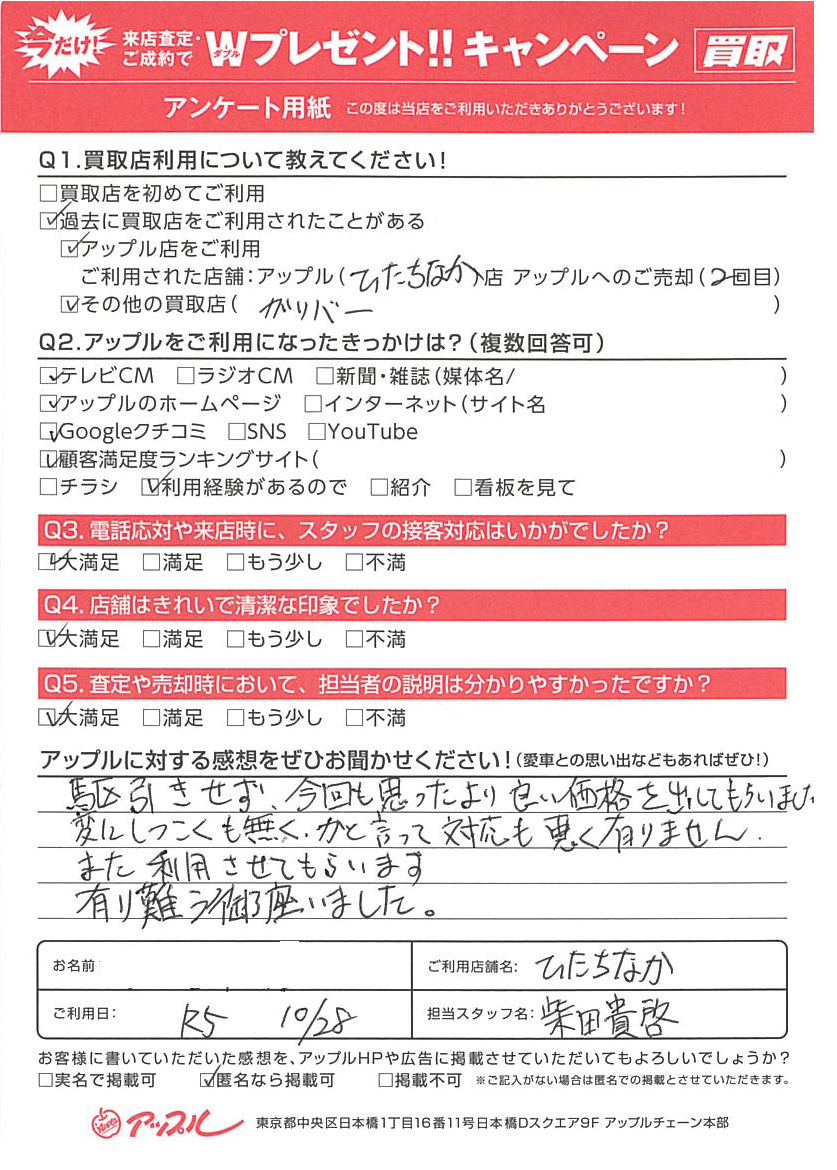 今だけ! 来店査定・ご成約で Wダブルプレゼント!! キャンペーン 買取
アンケート用紙 この度は当店をご利用いただきありがとうございます!
Q1.買取店利用について教えてください!
□買取店を初めてご利用
☑過去に買取店をご利用されたことがある
☑アップル店をご利用
ご利用された店舗:アップル(ひたちなか)店 アップルへのご売却(2回目)
☑その他の買取店( ガリバー )
Q2.アップルをご利用になったきっかけは?(複数回答可)
☑テレビCM □ラジオCM □新聞・雑誌(媒体名/ )
☑アップルのホームページ □インターネット(サイト名 )
☑Googleクチコミ □SNS □YouTube
☑顧客満足度ランキングサイト( )
□チラシ ☑利用経験があるので □紹介 □看板を見て
Q3. 電話応対や来店時に、スタッフの接客対応はいかがでしたか?
☑大満足 □満足 □もう少し □不満
Q4. 店舗はきれいで清潔な印象でしたか?
☑大満足 □満足 □もう少し □不満
Q5. 査定や売却時において、担当者の説明は分かりやすかったですか?
☑大満足 □満足 □もう少し □不満
アップルに対する感想をぜひお聞かせください!(愛車との思い出などもあればぜひ!)
駆引きせず、今回も思ったより良い価格を出してもらいました
変にしつこくも無く、かと言って対応も悪く有りません.
また利用させてもらいます
有り難う御座いました。
お名前 ご利用店舗名: ひたちなか
ご利用日: R5 10/28 担当スタッフ名: 柴田貴啓
お客様に書いていただいた感想を、アップルHPや広告に掲載させていただいてもよろしいでしょうか?
□実名で掲載可 ☑匿名なら掲載可 □掲載不可 ※ご記入がない場合は匿名での掲載とさせていただきます。
アップル 東京都中央区日本橋1丁目16番11号日本橋Dスクエア9F アップルチェーン本部